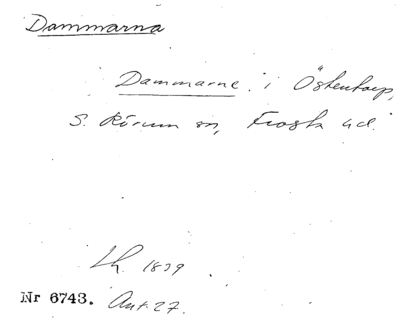 Dammarna
Dammarne i Östentorp,
S. Rörum sn, Frosta hd.
Lh. 1839
Nr 6743. Ant. 27.